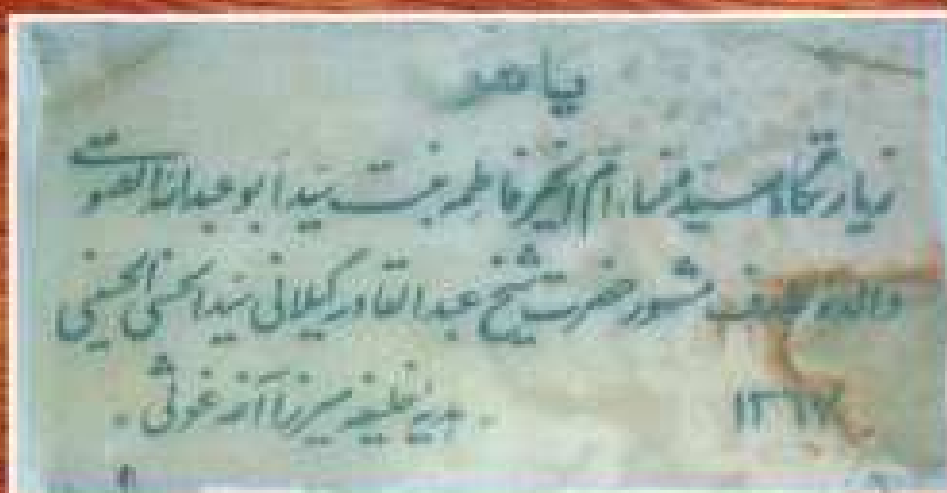 یا هو
زیارتگاه سیده نساء ام الخیر فاطمه بنت سید ابو عبدالله الصومعی
والده عارف مشهور حضرت شیخ عبدالقادر گیلانی سید الحسنی الحسینی
۱۳۶۷ هدیه خلیفه میرزا آغه غوثی